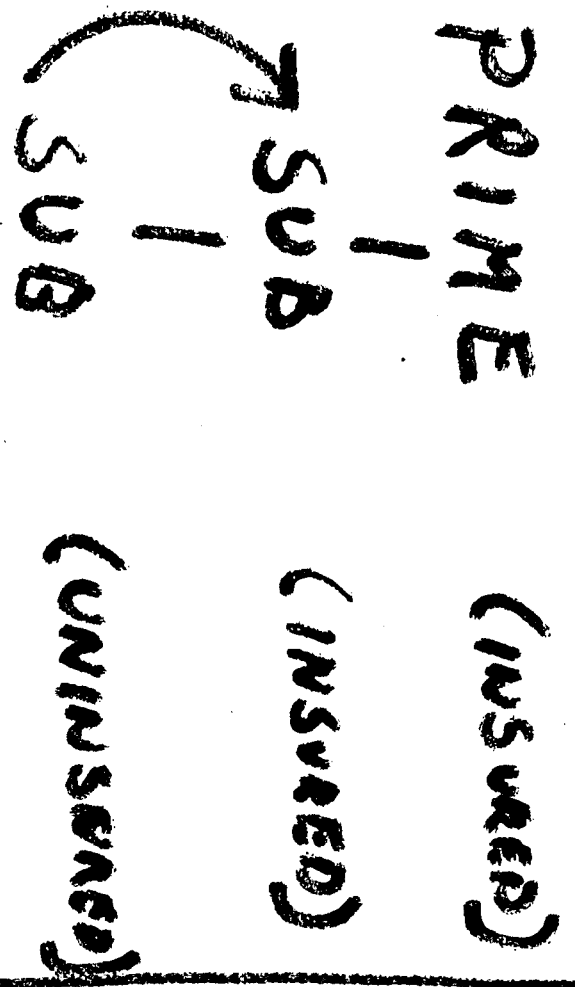 PRIME (INSURED)
SUB (INSURED)
SUB (UNINSURED)